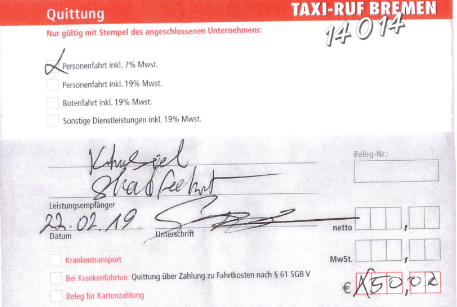 Quittung
TAXI-RUF BREMEN
14014
Nur gültig mit Stempel des angeschlossenen Unternehmens:
Personenfahrt inkl. 7% Mwst.
Personenfahrt inkl. 19% Mwst.
Botenfahrt inkl. 19% Mwst.
Sonstige Dienstleistungen inkl. 19% Mwst.
Beleg-Nr.:
Leistungsempfänger
22.02.19
Datum
Unterschrift
netto
,
Krankentransport
MwSt.
,
Bei Krankenfahrten: Quittung über Zahlung zu Fahrtkosten nach § 61 SGB V
Beleg für Kartenzahlung
€
50,02